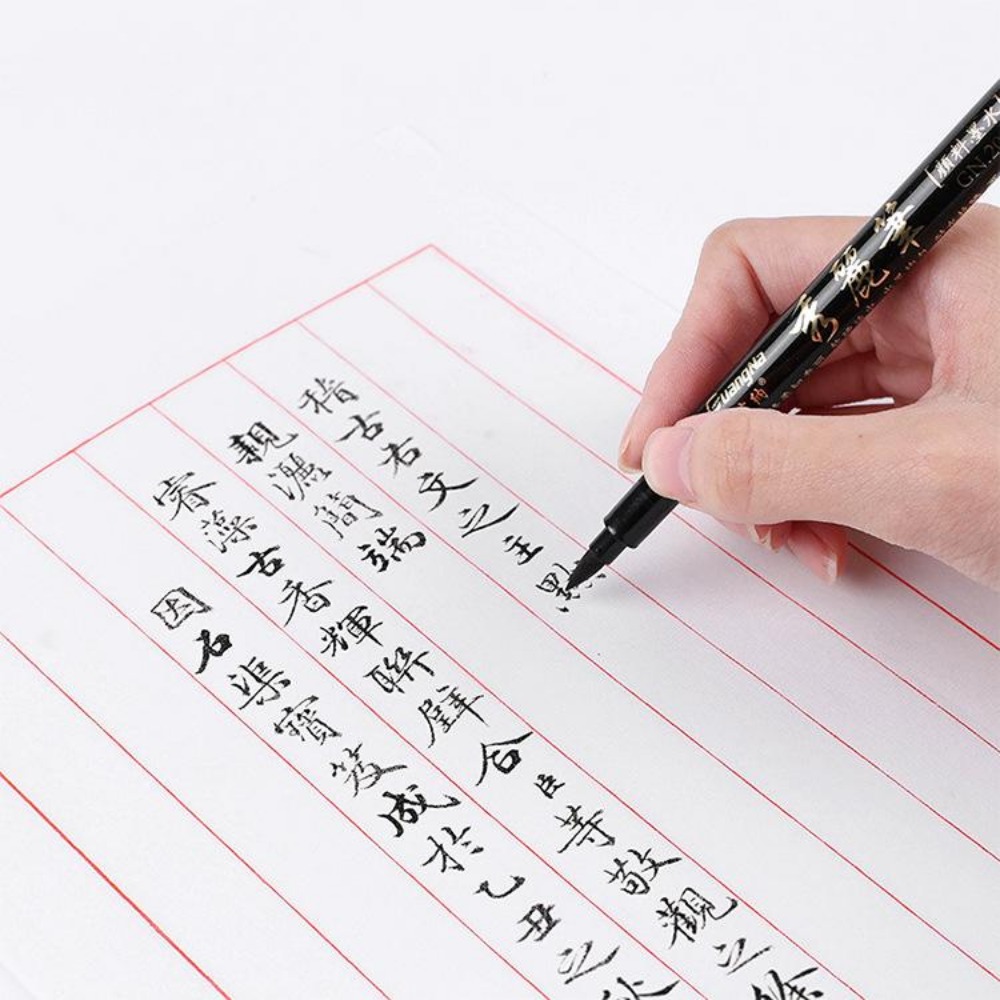 稽古右文之主
親灑簡端
睿藻古香輝聯璧合臣等敬觀之餘
因石渠寶笈成於乙丑之秋
秀麗筆
[颜料墨水]